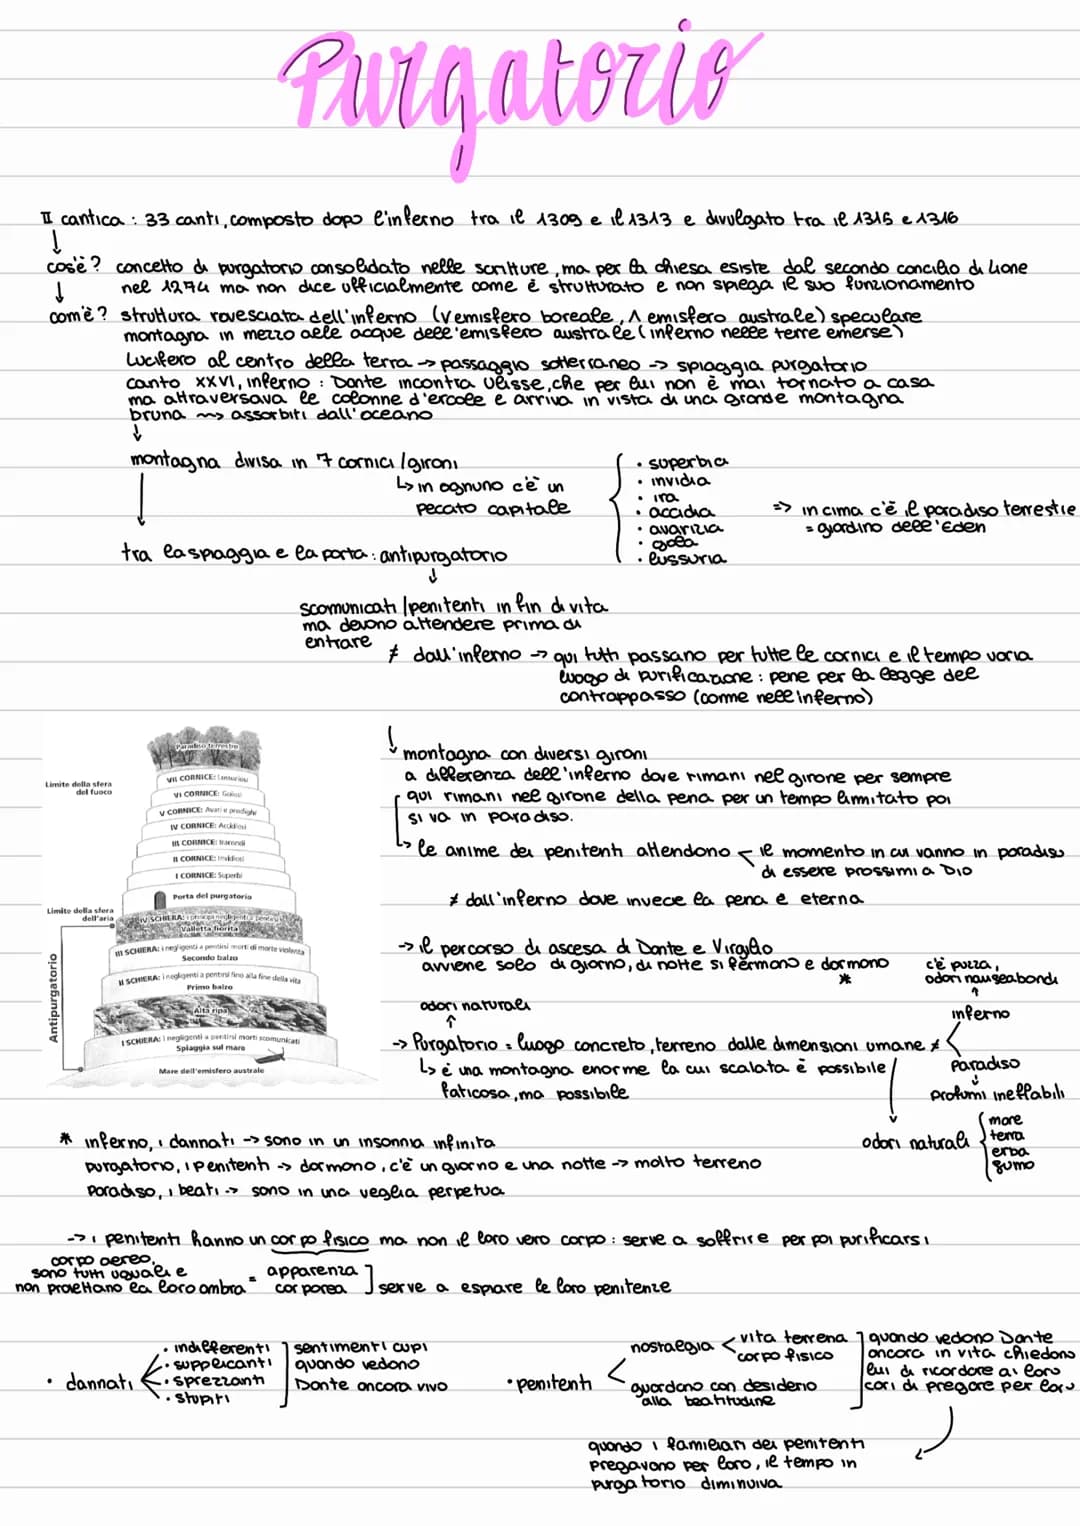 Purgatorio
II cantica : 33 canti, composto dopo l'inferno tra il 1309 e il 1313 e divulgato tra il 1315 e 1316
↓
cos'è? concetto di purgatorio consolidato nelle scritture, ma per la chiesa esiste dal secondo concilio di Lione
↓ nel 1274 ma non dice ufficialmente come è strutturato e non spiega il suo funzionamento
com'è? struttura rovesciata dell'inferno (V emisfero boreale, Λ emisfero australe) speculare
montagna in mezzo alle acque dell'emisfero australe (inferno nelle terre emerse)
Lucifero al centro della terra -> passaggio sotterraneo -> spiaggia purgatorio
canto XXVI, inferno : Dante incontra Ulisse, che per lui non è mai tornato a casa
ma attraversava le colonne d'ercole e arriva in vista di una grande montagna
bruna ~> assorbiti dall'oceano
↓
montagna divisa in 7 cornici/gironi
↳ in ognuno c'è un
peccato capitale
• superbia
• invidia
• ira
• accidia
• avarizia
• gola
• lussuria
=> in cima c'è il paradiso terrestre
= giardino dell'Eden
tra la spiaggia e la porta : antipurgatorio
↓
scomunicati/penitenti in fin di vita
ma devono attendere prima di
entrare
≠ dall'inferno -> qui tutti passano per tutte le cornici e il tempo varia
luogo di purificazione : pene per la legge del
contrappasso (come nell'inferno)
↓ montagna con diversi gironi
a differenza dell'inferno dove rimani nel girone per sempre
qui rimani nel girone della pena per un tempo limitato poi
si va in paradiso.
↳ le anime dei penitenti attendono < il momento in cui vanno in paradiso
di essere prossimi a Dio
≠ dall'inferno dove invece la pena è eterna
Paradiso terrestre
Limite della sfera
del fuoco
VII CORNICE: Lussuriosi
VI CORNICE: Golosi
V CORNICE: Avari e prodighi
IV CORNICE: Accidiosi
III CORNICE: Iracondi
II CORNICE: Invidiosi
I CORNICE: Superbi
Porta del purgatorio
Limite della sfera
dell'aria
IV SCHIERA: i principi negligenti a pentirsi
Valletta fiorita
III SCHIERA: i negligenti a pentirsi morti di morte violenta
Secondo balzo
II SCHIERA: i negligenti a pentirsi fino alla fine della vita
Primo balzo
Alta ripa
I SCHIERA: i negligenti a pentirsi morti scomunicati
Spiaggia sul mare
Mare dell'emisfero australe
Antipurgatorio
-> il percorso di ascesa di Dante e Virgilio
avviene solo di giorno, di notte si fermano e dormono
*
c'è puzza,
odori nauseabondi
↑
inferno
odori naturali
↑
-> Purgatorio = luogo concreto, terreno dalle dimensioni umane ≠ <
↳ è una montagna enorme la cui scalata è possibile
faticosa, ma possibile
Paradiso
↓
profumi ineffabili
odori naturali { mare
terra
erba
fumo
* inferno, i dannati -> sono in un insonnia infinita
purgatorio, i penitenti -> dormono, c'è un giorno e una notte -> molto terreno
Paradiso, i beati -> sono in una veglia perpetua
-> i penitenti hanno un corpo fisico ma non il loro vero corpo : serve a soffrire per poi purificarsi
corpo aereo,
sono tutti uguali e
non proiettano la loro ombra
= apparenza
corporea ] serve a espiare le loro penitenze
• dannati
• indifferenti
• supplicanti
• sprezzanti
• stupiti
sentimenti cupi
quando vedono
Dante ancora vivo
• penitenti <
nostalgia < vita terrena
corpo fisico
guardano con desiderio
alla beatitudine
quando vedono Dante
ancora in vita chiedono
lui di ricordare ai loro
cari di pregare per loro
quando i familiari dei penitenti
pregavano per loro, il tempo in
purgatorio diminuiva